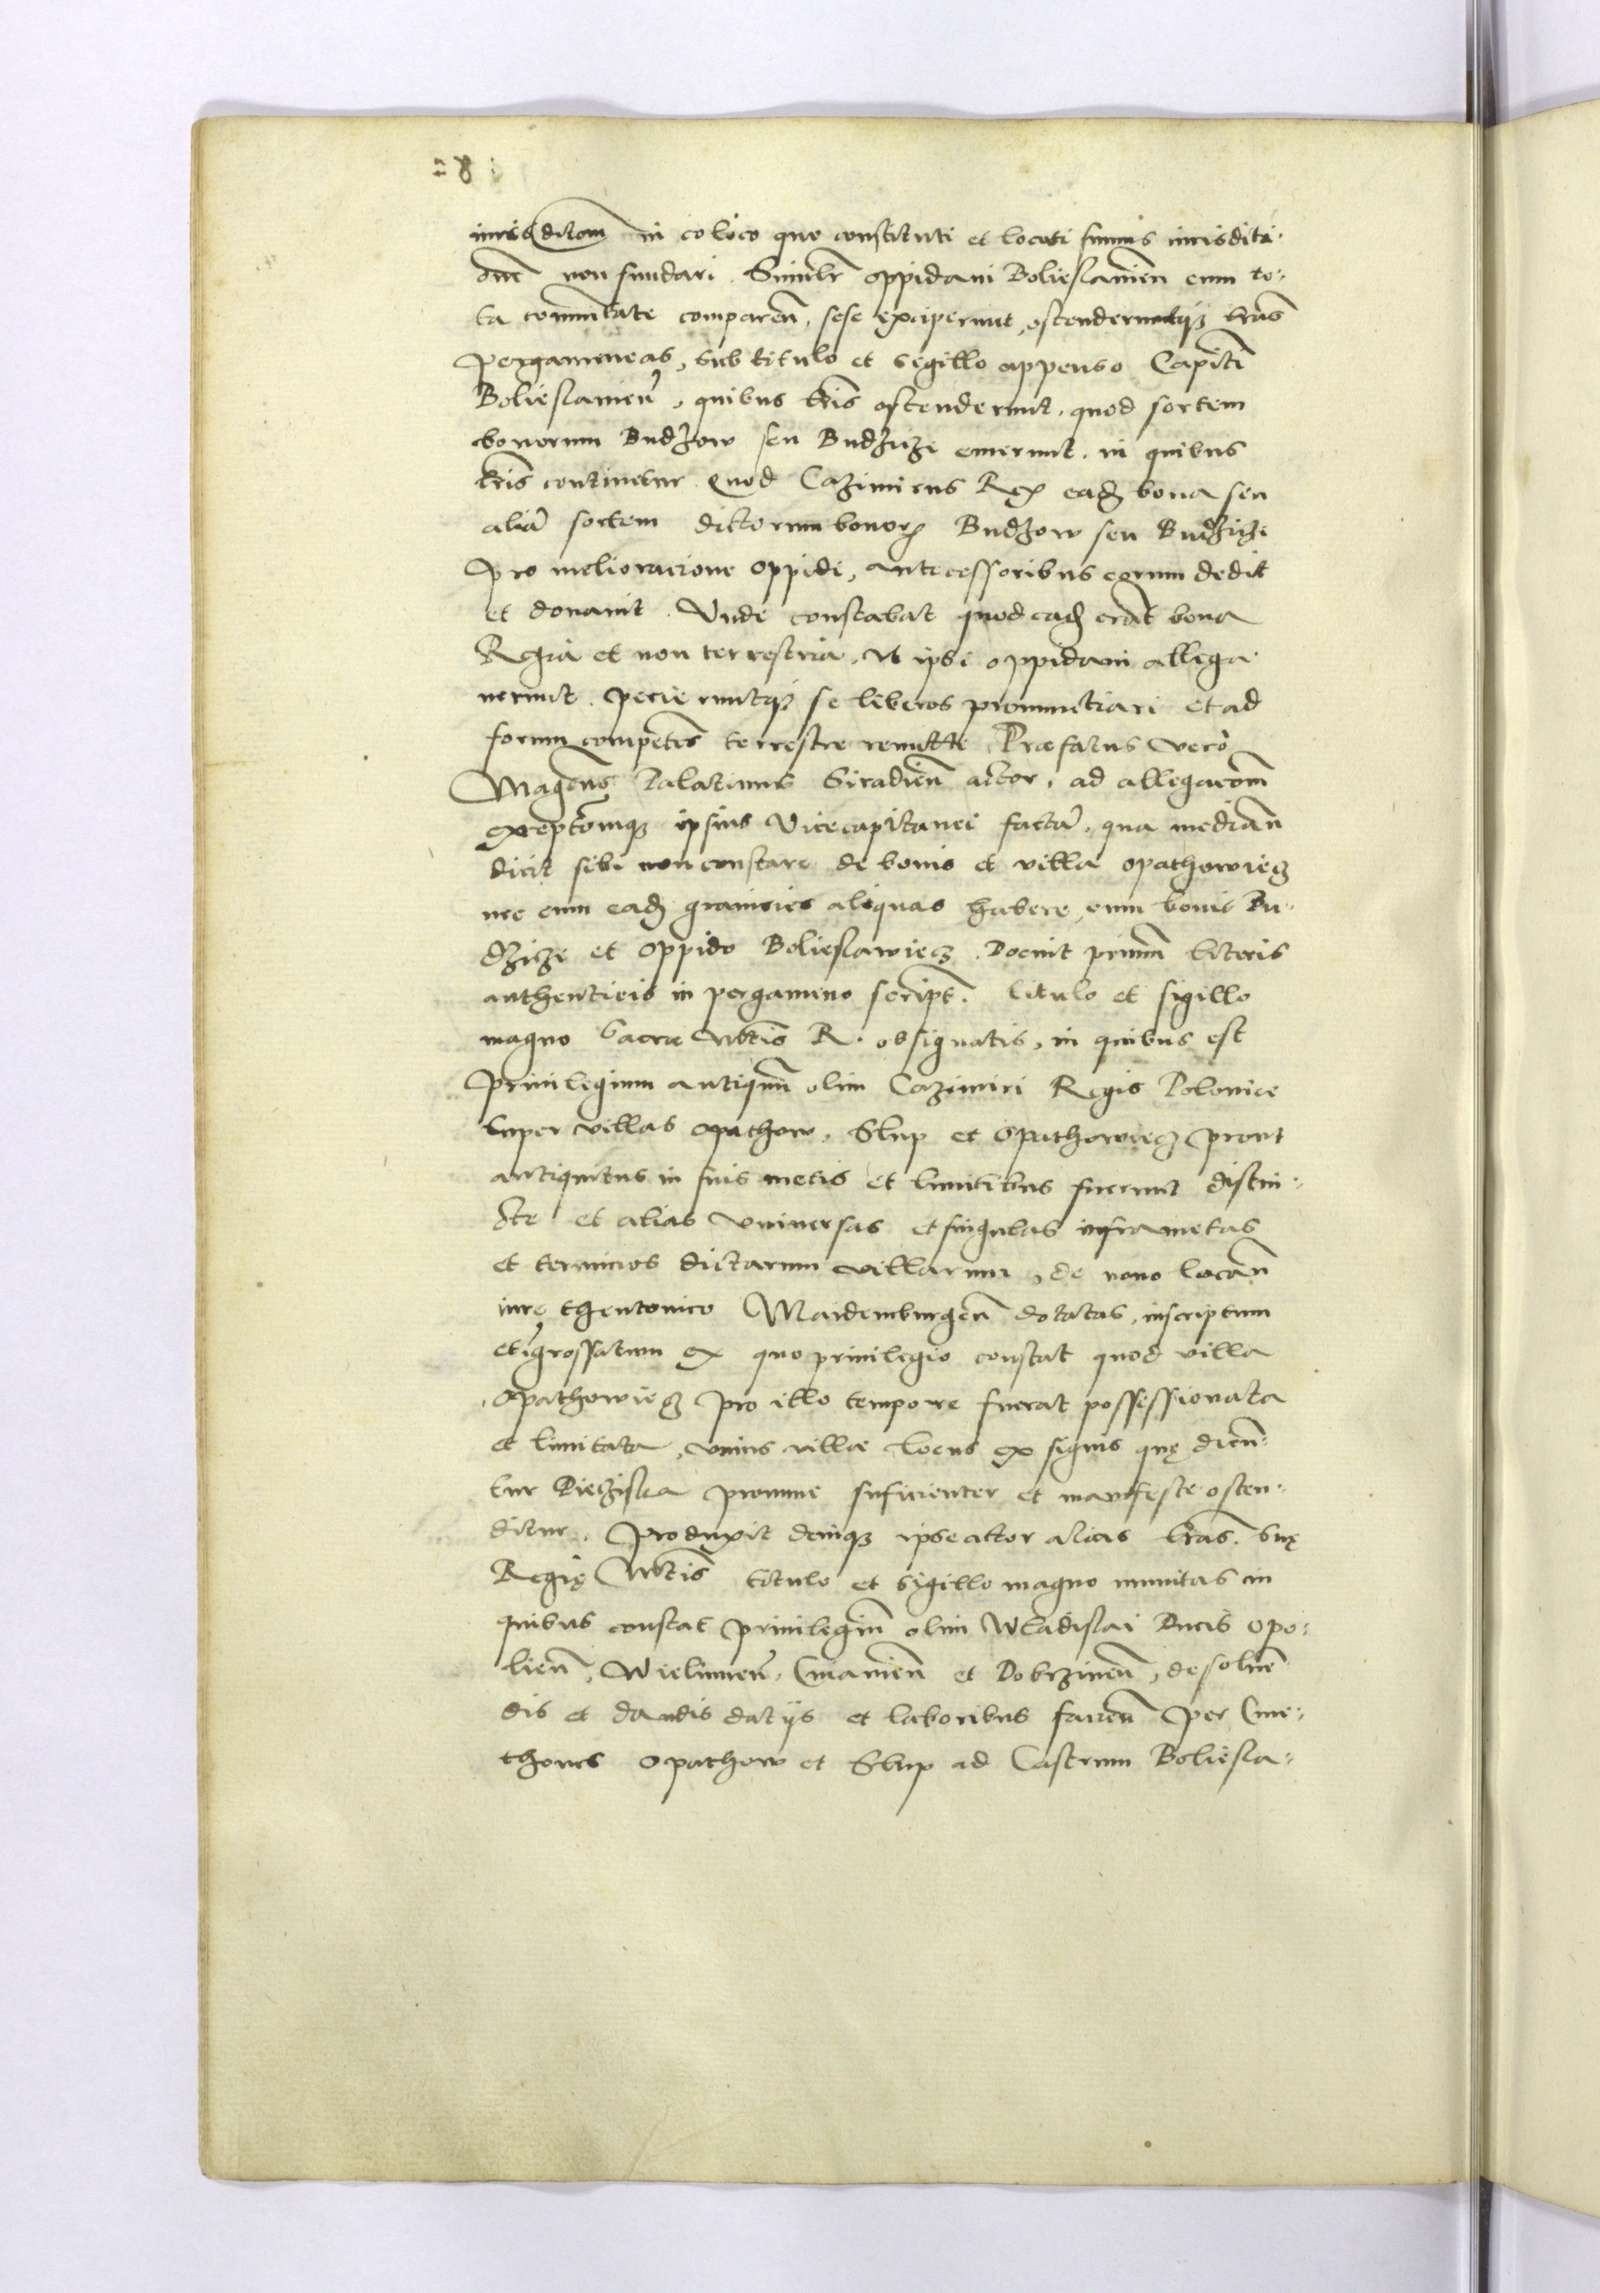 28
iurisditom in eo loco quo constituti et locati sumus iurisditi
onē non fundari. Similr oppidani Boliesławien cum to-
ta comūitate comparen, sese exciperunt, ostenderuntqз lrās
pergameneas, sub titulo et sigillo appenso Capitī
Boliesłauien, quibus lris ostenderunt, quod sortem
bonorum Budzow seu Budziže emerunt. in quibus
lris continetur Quod Cazimirus Rex eadз bona seu
aliā sortem dictorum bonorз Budzow seu Budziže
pro melioracione oppidi, antecessoribus eorum dedit
et donauit. Vnde constabat quod eadз erāt bona
Regia et non terrestria, vt ipsi oppidani allega
uerunt. petieruntqз se liberos pronuntiari et ad
forum competēs terrestre remitti. Præfatus vero
Magcus Palatinus Siradien actor, ad allegacōm
exceptōmqз ipsius Vicecapitanei factā, qua median
dicit sibi non constare de bonis et villa opathowiecз
nec cum eadз granicies aliquas habere, cum bonis Bu-
dziže et oppido Bolieslawiecз. Docuit primū literis
authenticis in pergameno script. titulo et sigillo
magno Sacræ Mtis R. obsignatis, in quibus est
priuilegium antiquū olim Cazimiri Regis Poloniæ
super villas opathow, Slup et Opathowiecз prout
antiquitus in suis metis et limitibus fuerunt distin-
ctæ et alias vniuersas et singulas infra metas
et terminos dictarum villarum, de nouo locan
iure theutonico Maidemburgen dotatas, inscriptum
et īgrossatum ex quo priuilegio constat quod villa
Opathowiecз pro illo tempore fuerat possessionata
et limitata, vnius villæ locus ex signis quę dicun-
tur Diecziska promme suficienter et manifeste osten-
ditur. Produxit deniqз ipse actor alias lrās. Suę
Regię Mtis titulo et sigillo magno munitas in
quibus constat priuilegiū olim Wladislai Ducis opo-
lien, Wielunen, Cuiauien et Dobrzinen, de soluen
dis et dandis datijs et laboribus facien per Cme-
thones Opathow et Slup ad Castrum Boliesla-